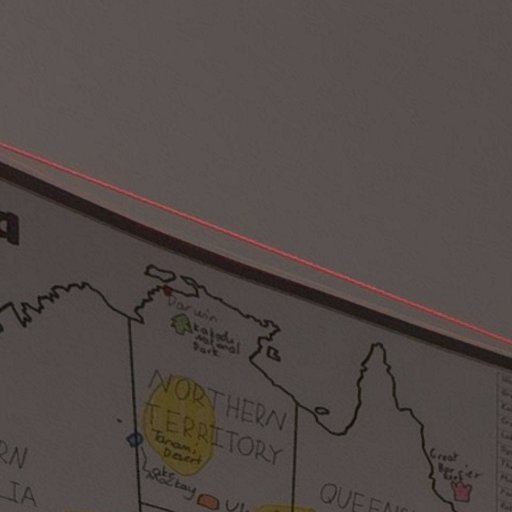 Darwin
Kakadu
National
Park
NORTHERN
TERRITORY
Tanami
Desert
Lake
Mackay
Great
Barrier
Reef
RN
IA